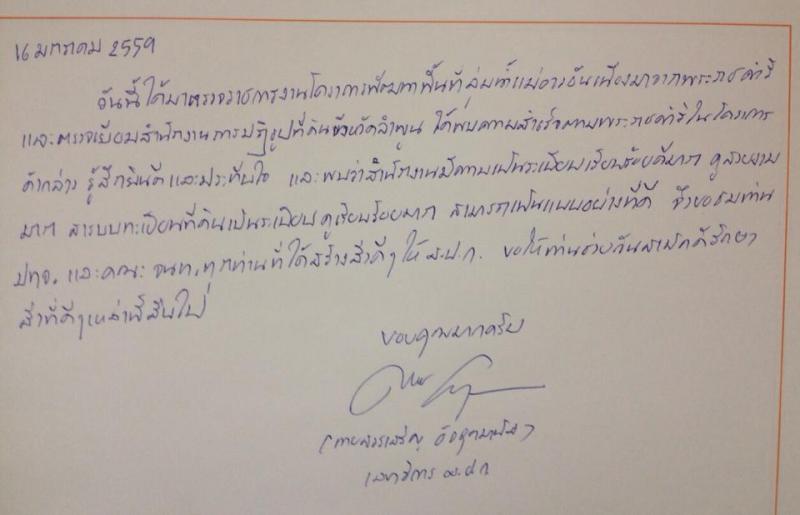 16 มกราคม 2559
วันนี้ได้มาตรวจราชการงานโครงการพัฒนาพื้นที่ลุ่มน้ำแม่อาวอันเนื่องมาจากพระราชดำริ
และตรวจเยี่ยมสำนักงานการปฏิรูปที่ดินจังหวัดลำพูน ได้พบความสำเร็จตามพระราชดำริในโครงการ
ดังกล่าว รู้สึกยินดีและประทับใจ และพบว่าสำนักงานมีความเป็นระเบียบเรียบร้อยดีมาก ดูสวยงาม
มาก สารบบทะเบียนที่ดินเป็นระเบียบ ดูเรียบร้อยมาก สามารถเป็นแบบอย่างที่ดี จึงขอชมท่าน
ปทจ. และคณะ จนท. ทุกท่านที่ได้สร้างสิ่งดีๆ ให้ ส.ป.ก. ขอให้ท่านช่วยกันสามัคคีรักษา
สิ่งที่ดีๆ เหล่านี้สืบไป
ขอบคุณมากครับ
(นายสรรเสริญ อัจจุตมานัส)
เลขาธิการ ส.ป.ก.